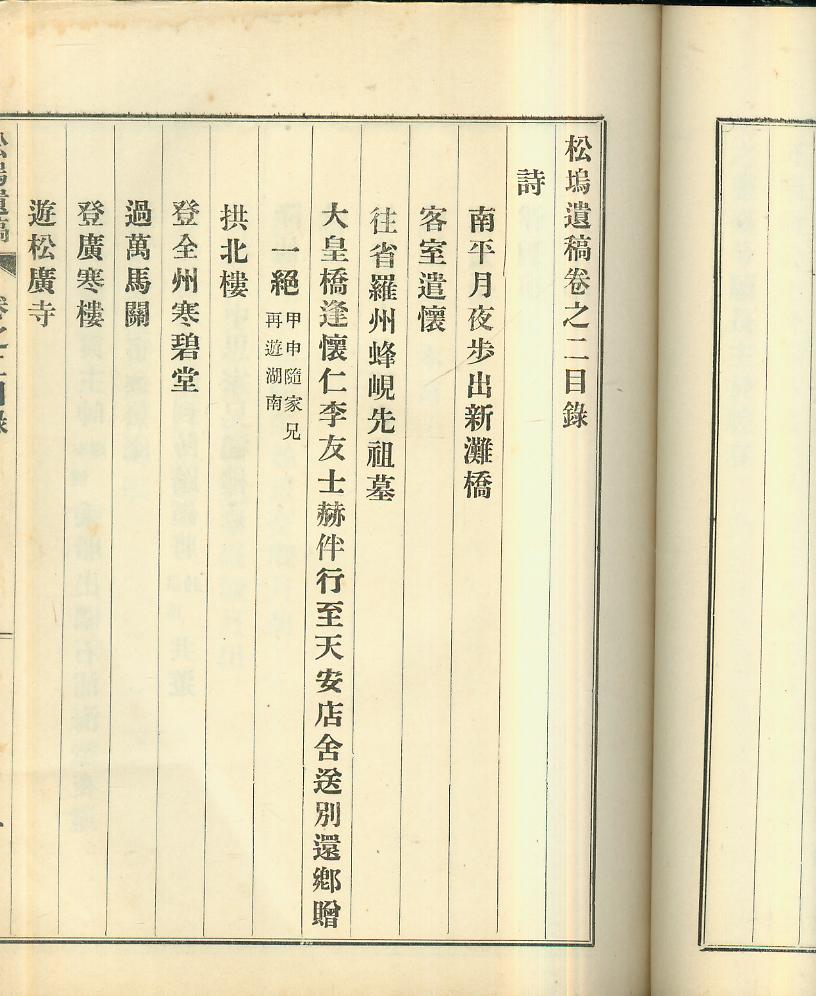 松塢遺稿卷之二目錄
詩
南平月夜步出新灘橋
客室遣懷
往省羅州蜂峴先祖墓
大皇橋逢懷仁李友士赫伴行至天安店舍送別還鄉贈
一絕 甲申隨家兄
再遊湖南
拱北樓
登全州寒碧堂
過萬馬關
登廣寒樓
遊松廣寺
松塢遺稿 卷之二目錄